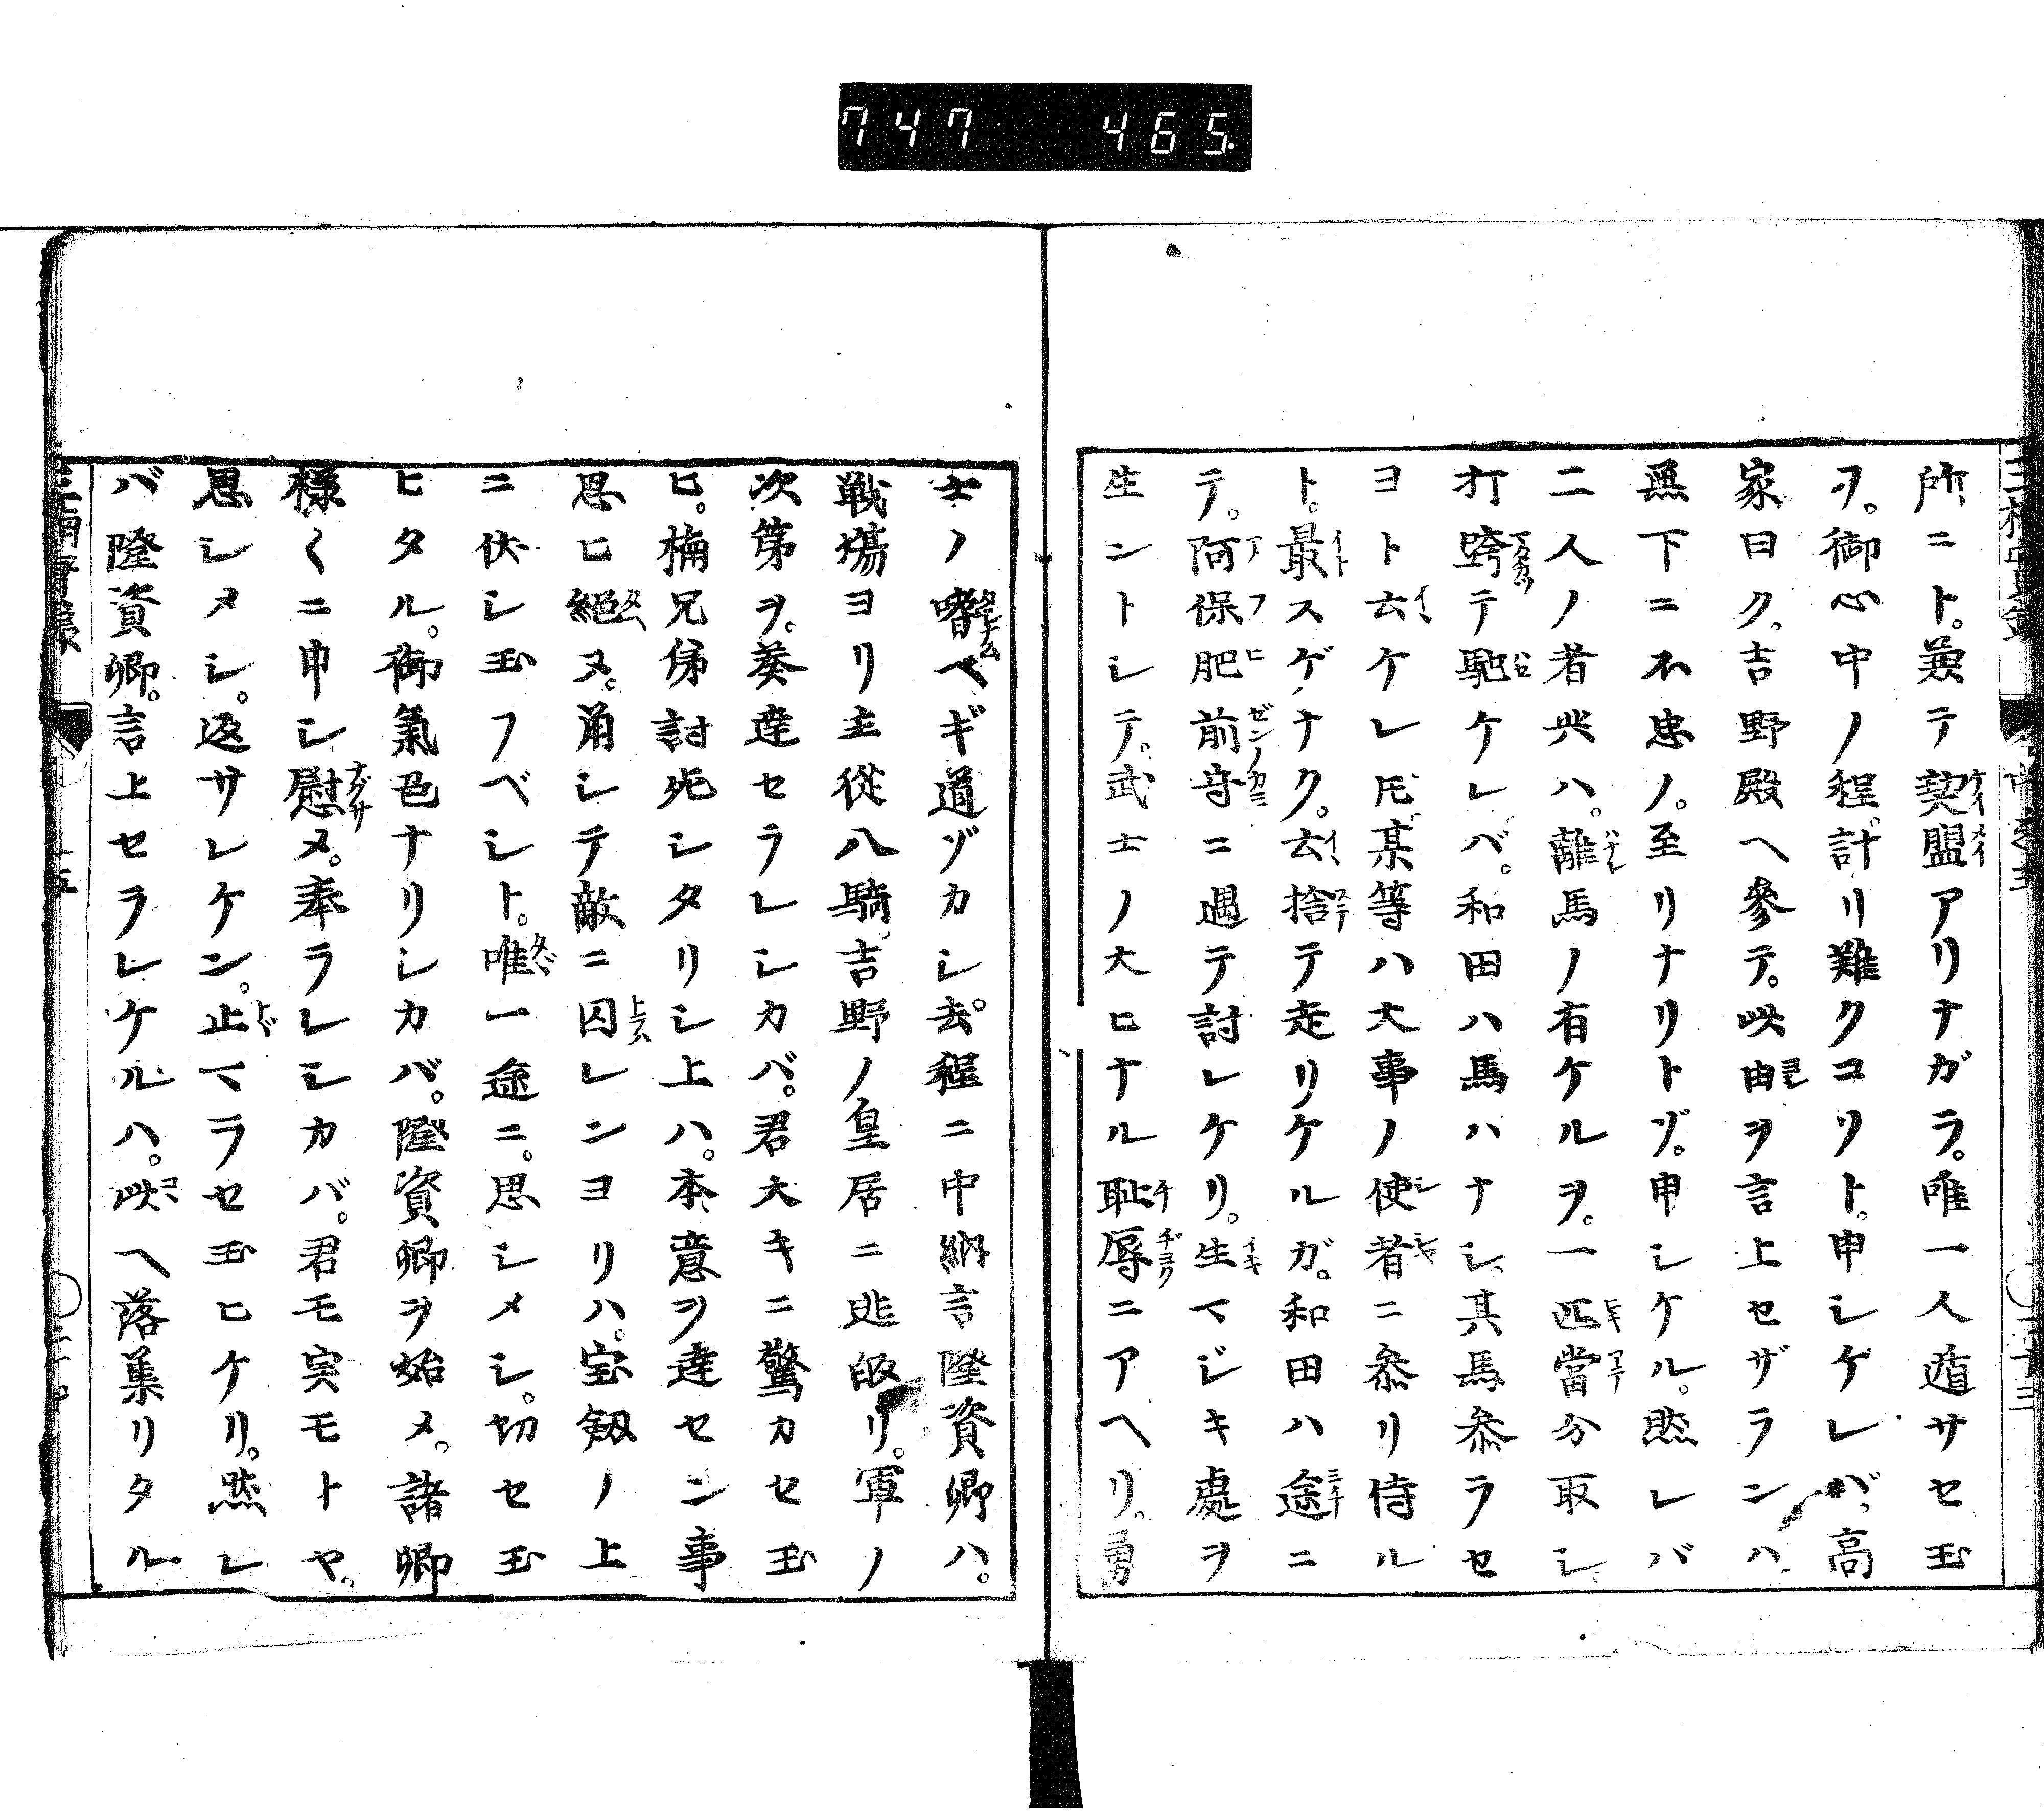 747 465.
所ニト。兼テ契盟アリナガラ。唯一人遁サセ玉
ヲ。御心中ノ程。計リ難クコソト。申シケレバ。高
家曰ク。吉野殿ヘ參テ。此由ヲ言上セザランハ。
無下ニ不忠ノ。至リナリトゾ。申シケル。然レバ
二人ノ者共ハ。離馬ノ有ケルヲ。一匹當分取シ。
打跨テ馳ケレバ。和田ハ馬ハナシ。其馬參ラセ
ヨト云ケレ𪜈。某等ハ大事ノ使者ニ參リ侍ル
ト。最スゲナク。云捨テ走リケルガ。和田ハ途ニ
テ。阿保肥前守ニ遇テ討レケリ。生マジキ處ヲ
生ントシテ。武士ノ大ヒナル恥辱ニアヘリ。勇
士ノ嗜ベギ道ゾカシ。去程ニ中納言隆資卿ハ。
戦場ヨリ主從八騎。吉野ノ皇居ニ逃皈リ。軍ノ
次第ヲ。奏達セラレシカバ。君大キニ驚カセ玉
ヒ。楠兄弟討死シタリシ上ハ。本意ヲ達セン事
思ヒ絕ヌ。角シテ敵ニ囚レンヨリハ。宝剱ノ上
ニ伏シ玉フベシト。唯一途ニ。思シメシ。切セ玉
ヒタル。御氣色ナリシカバ。隆資卿ヲ始メ。諸卿
様〱ニ申シ慰メ。奉ラレシカバ。君モ実モトヤ。
思シメシ。返サレケン。止マラセ玉ヒケリ。然レ
バ隆資卿。言上セラレケルハ。此ヘ落集リタル